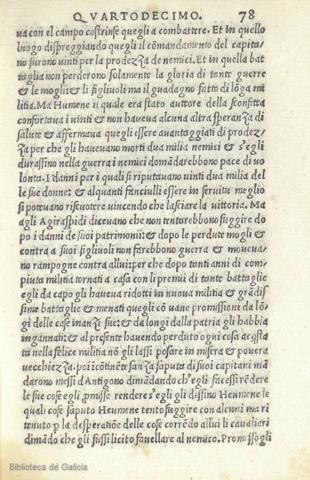 QVARTODECIMO. 78
va con el campo costrinse quegli a combattere. Et in quello
luogo dispreggiando quegli il cōmandamento del capita/
no furono vinti per la prodezza de nemici. Et in quella bat
taglia non perderono solamente la gloria di tante guerre
& le mogli & li figliuoli ma il guadagno fatto di lōga mi
litia. Ma Humene il quale era stato auttore della sconfitta
confortava i vinti & non haveva alcuna altra speranza di
salute & affermava quegli essere avantaggiati di prodez/
za per che gli havevano morti dua milia nemici & s'egli
durassino nella guerra i nemici domādarebbono pace di vo
lonta. I danni per i quali si riputavano vinti dua milia del
le sue donne & alquanti fanciulli essere in servitu meglio
si potevano riscuotere vincendo che lasciare la vittoria. Ma
agli Agiraspidi dicevano che non tentarebbono fuggire do
po i danni de suoi patrimonii & dopo le perdute mogli &
contra a suoi figliuoli non farebbono guerra & moveva/
no rampogne contra allui: per che dopo tanti anni di com/
piuta militia tornati a casa con li premii di tante battaglie
egli da capo gli haveva ridotti in nuova militia & grādis
sime battaglie & menati quegli cō vane promissioni da lō/
gi delle case inanzi sue: & da longi dalla patria gli habbia
ingannati: & al presente havendo perduto ogni cosa acqsta
ta nella felice militia nō gli lassi posare in misera & povera
vecchiezza. poi icōtinēte sanza saputa di suoi capitani mā
darono messi d'Antigono dimādando ch'egli facessi rēdere
le sue cose egli pmisse rendere s'egli gli dessino Heumene le
quali cose saputo Heumene tento fuggire con alcuni ma ri
tenuto p la desperatiōe delle cose corrēdo allui li cavalieri
dimādo che gli fussi licito favellare al nemico. Promissogli
Biblioteca de Galicia